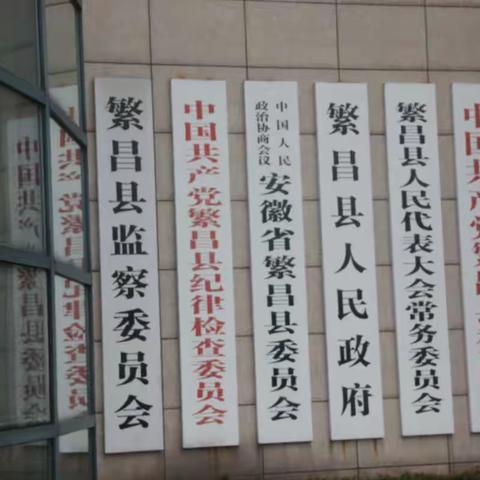 繁昌县监察委员会
中国共产党繁昌县纪律检查委员会
中国人民
政治协商会议
安徽省繁昌县委员会
繁昌县人民政府
繁昌县人民代表大会常务委员会
中国共产党繁昌